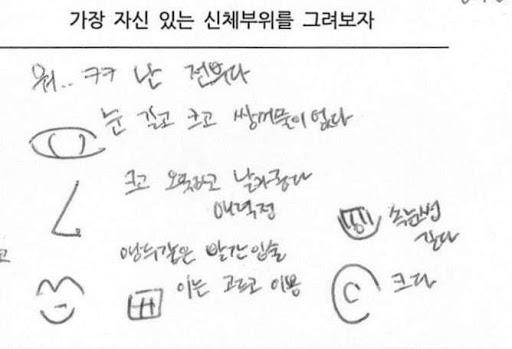 가장 자신 있는 신체부위를 그려보자
뭐.. ㅋㅋ 난 전부다
눈 길고 크고 쌍꺼풀이 없다
크고 오똑하고 날카롭다
매력점
앵두같은 빨간 입술
이는 고르고 이쁨
속눈썹
길다
크다
고